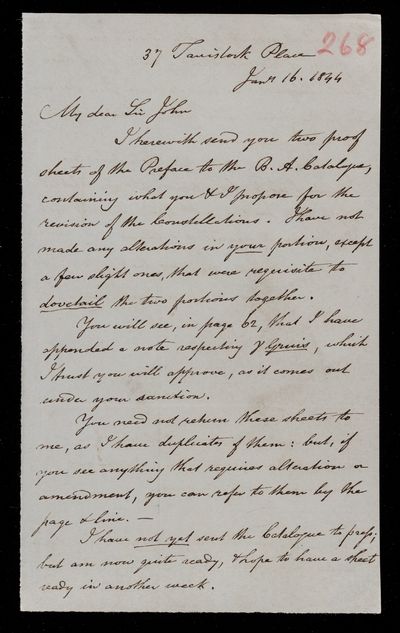 37 Tavistock Place 268
Jany 16. 1844
My dear Sir John
I herewith send you two proof
sheets of the Preface to the B. A. Catalogue,
containing what you & I propose for the
revision of the Constellations. I have not
made any alterations in your portion, except
a few slight ones, that were requisite to
dovetail the two portions together.
You will see, in page 62, that I have
appended a note respecting γ Gruis, which
I trust you will approve, as it comes out
under your sanction.
You need not return these sheets to
me, as I have duplicates of them: but, if
you see anything that requires alteration or
amendment, you can refer to them by the
page & line. —
I have not yet sent the Catalogue to press;
but am now quite ready, & hope to have a sheet
ready in another week.